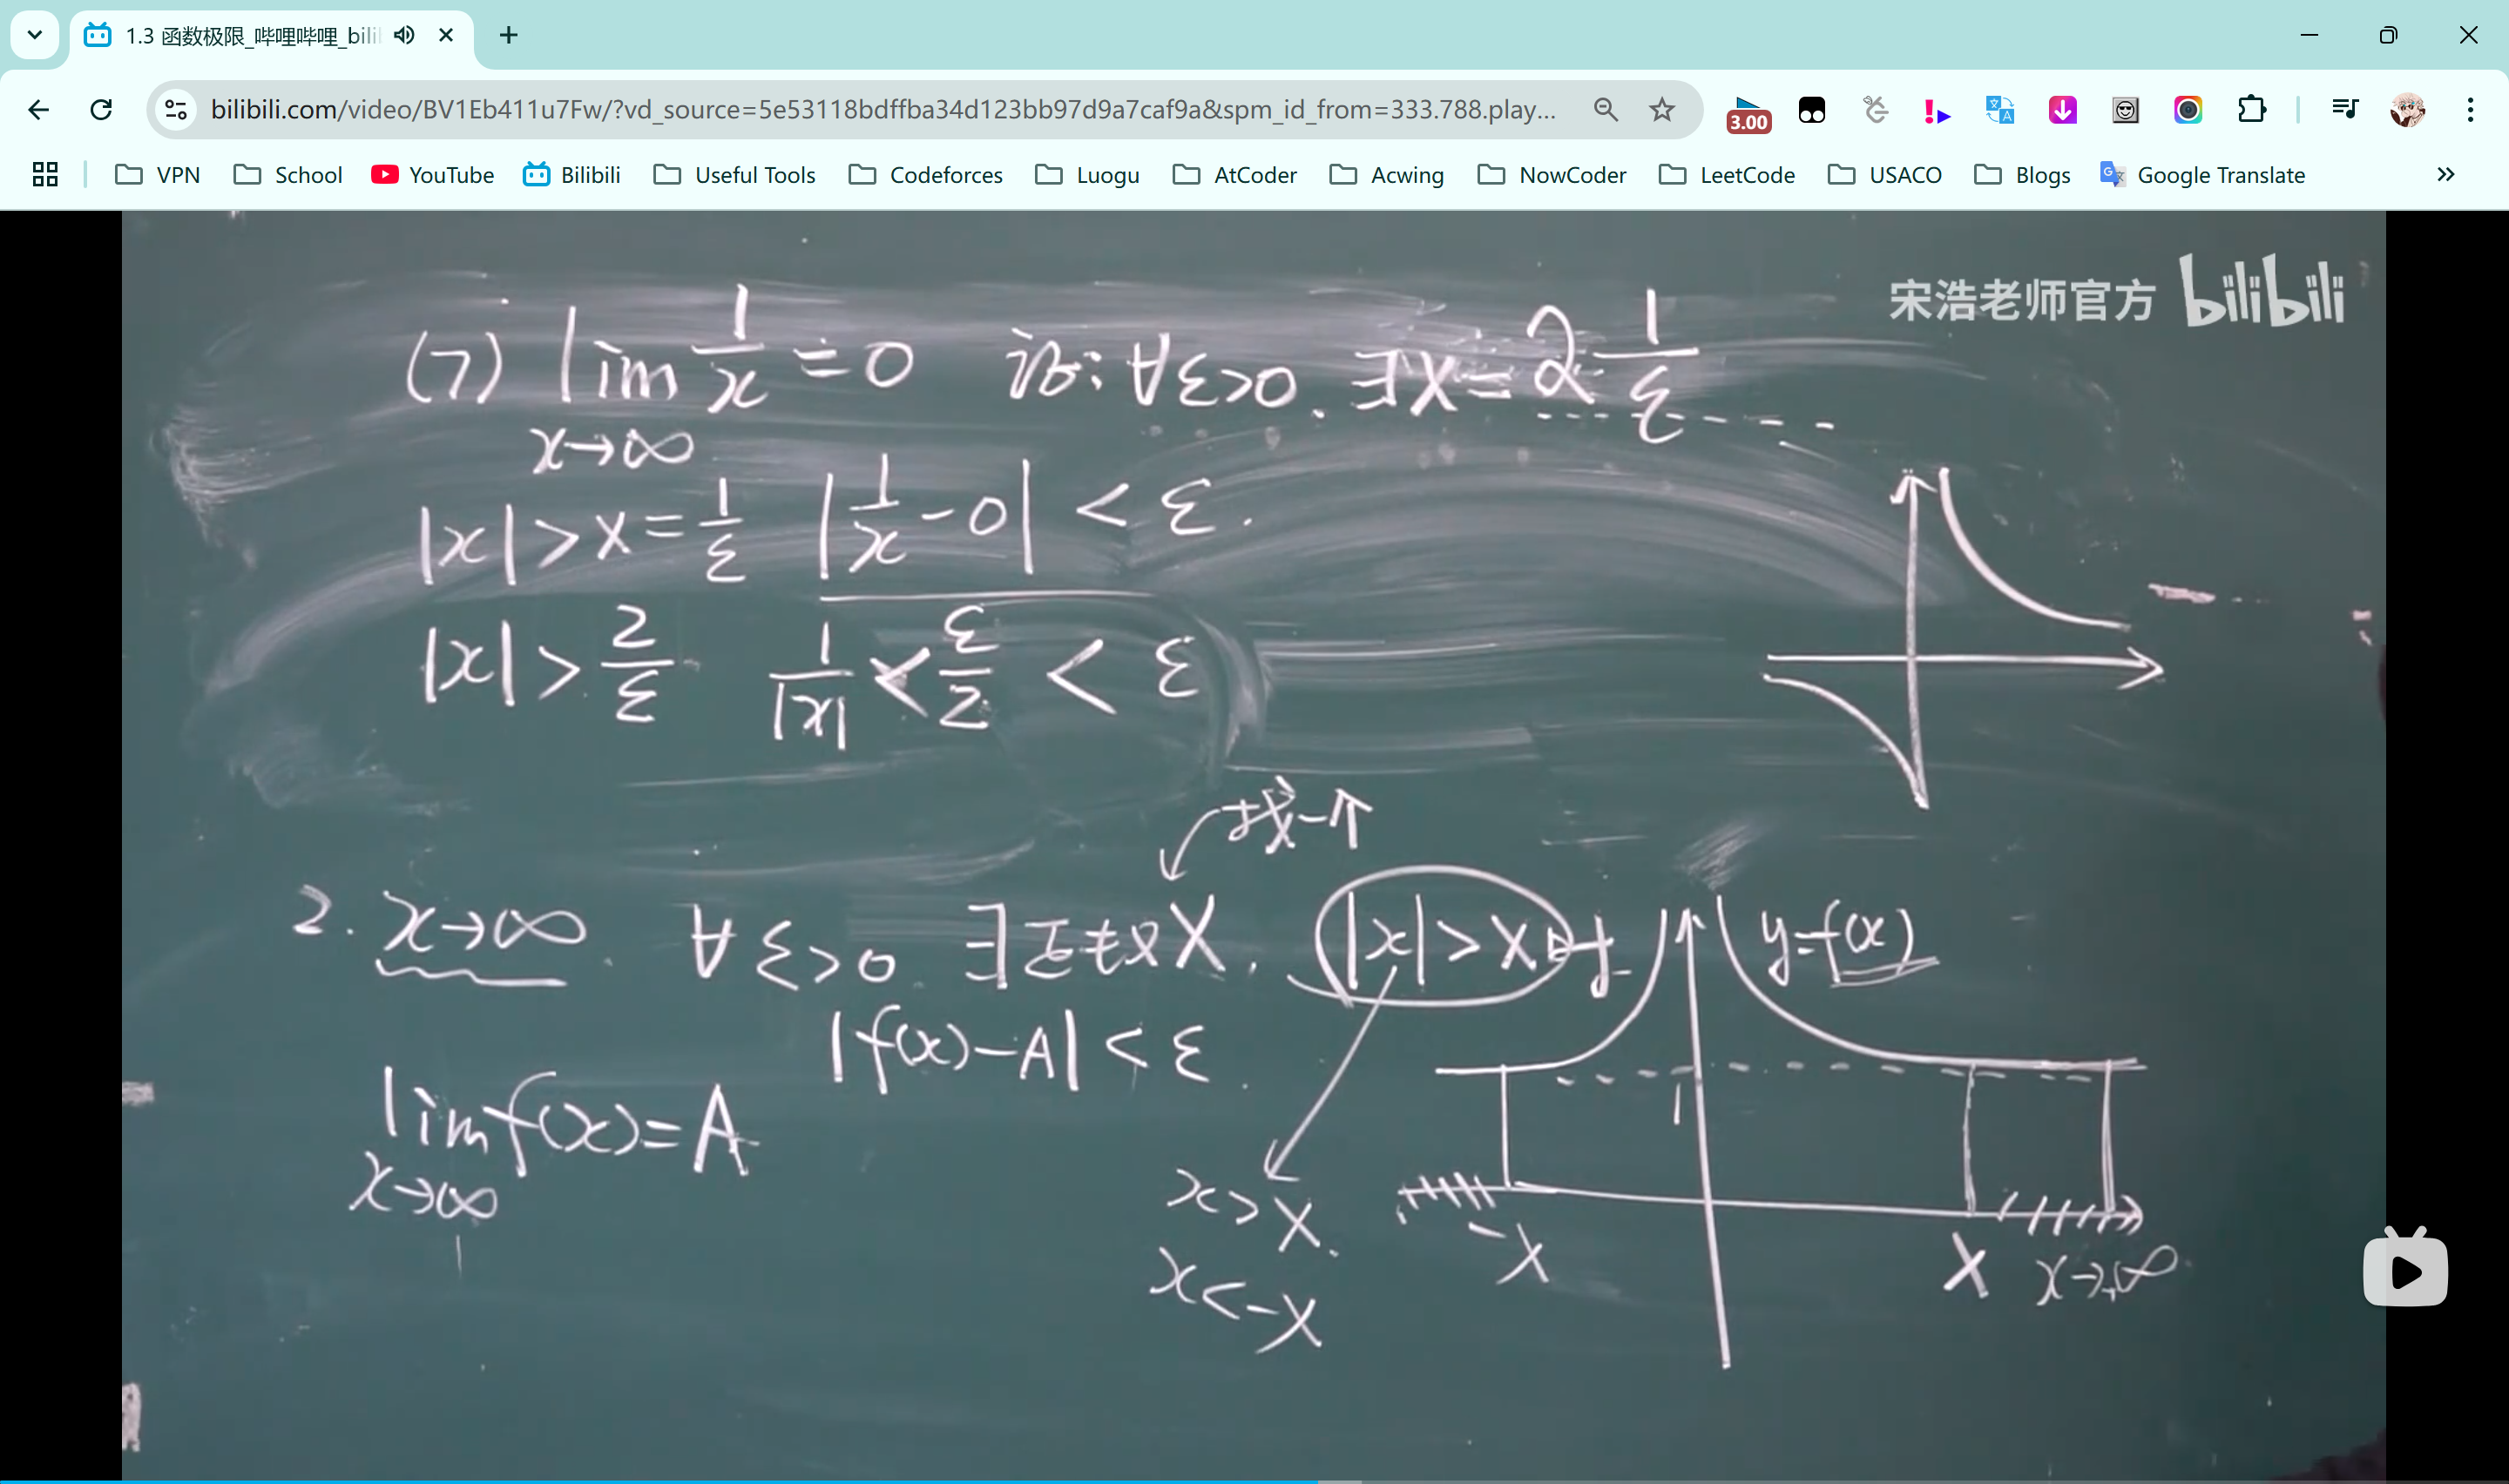 1.3 函数极限_哔哩哔哩_bili
bilibili.com/video/BV1Eb411u7Fw/?vd_source=5e53118bdffba34d123bb97d9a7caf9a&spm_id_from=333.788.play...
3.00
VPN School YouTube Bilibili Useful Tools Codeforces Luogu AtCoder Acwing NowCoder LeetCode USACO Blogs Google Translate
宋浩老师官方 bilibili
(7) lim x→∞ 1/x = 0 证: ∀ε>0. ∃X = 2 1/ε
|x| > X = 1/ε |1/x - 0| < ε.
|x| > 2/ε 1/|x| < ε/2 < ε
找一个
2. x→∞. ∀ε>0. ∃正数X. |x| > X时 y=f(x)
|f(x)-A| < ε.
lim x→∞ f(x) = A
1
x > X.
x < -X
-X X x→+∞